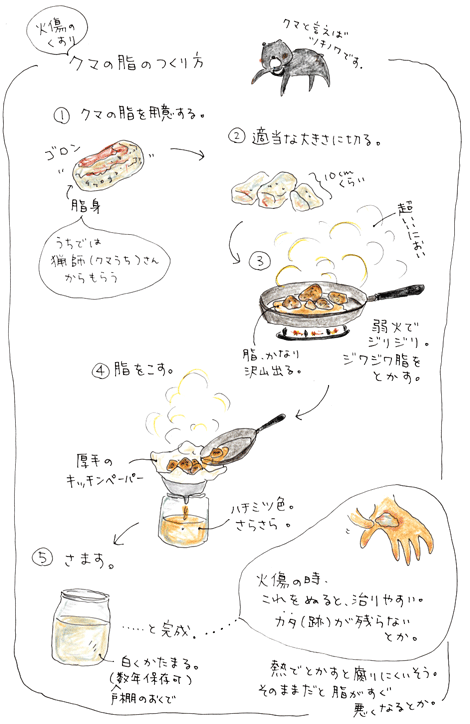 火傷の
くすり
クマの脂のつくり方
クマと言えば
ツキノワです。
① クマの脂を用意する。
ゴロン
脂身
うちでは
猟師(クマうち)さん
からもらう
② 適当な大きさに切る。
10cm
くらい
③
超いいにおい
脂、かなり
沢山出る。
弱火で
ジリジリ。
ジワジワ脂を
とかす。
④ 脂をこす。
厚手の
キッチンペーパー
ハチミツ色。
さらさら。
⑤ さます。
……と完成。
白くかたまる。
(数年保存可)
戸棚のおくで
火傷の時、
これをぬると、治りやすい。
カタ(跡)が残らない
とか。
熱でとかすと腐りにくいそう。
そのままだと脂がすぐ
悪くなるとか。